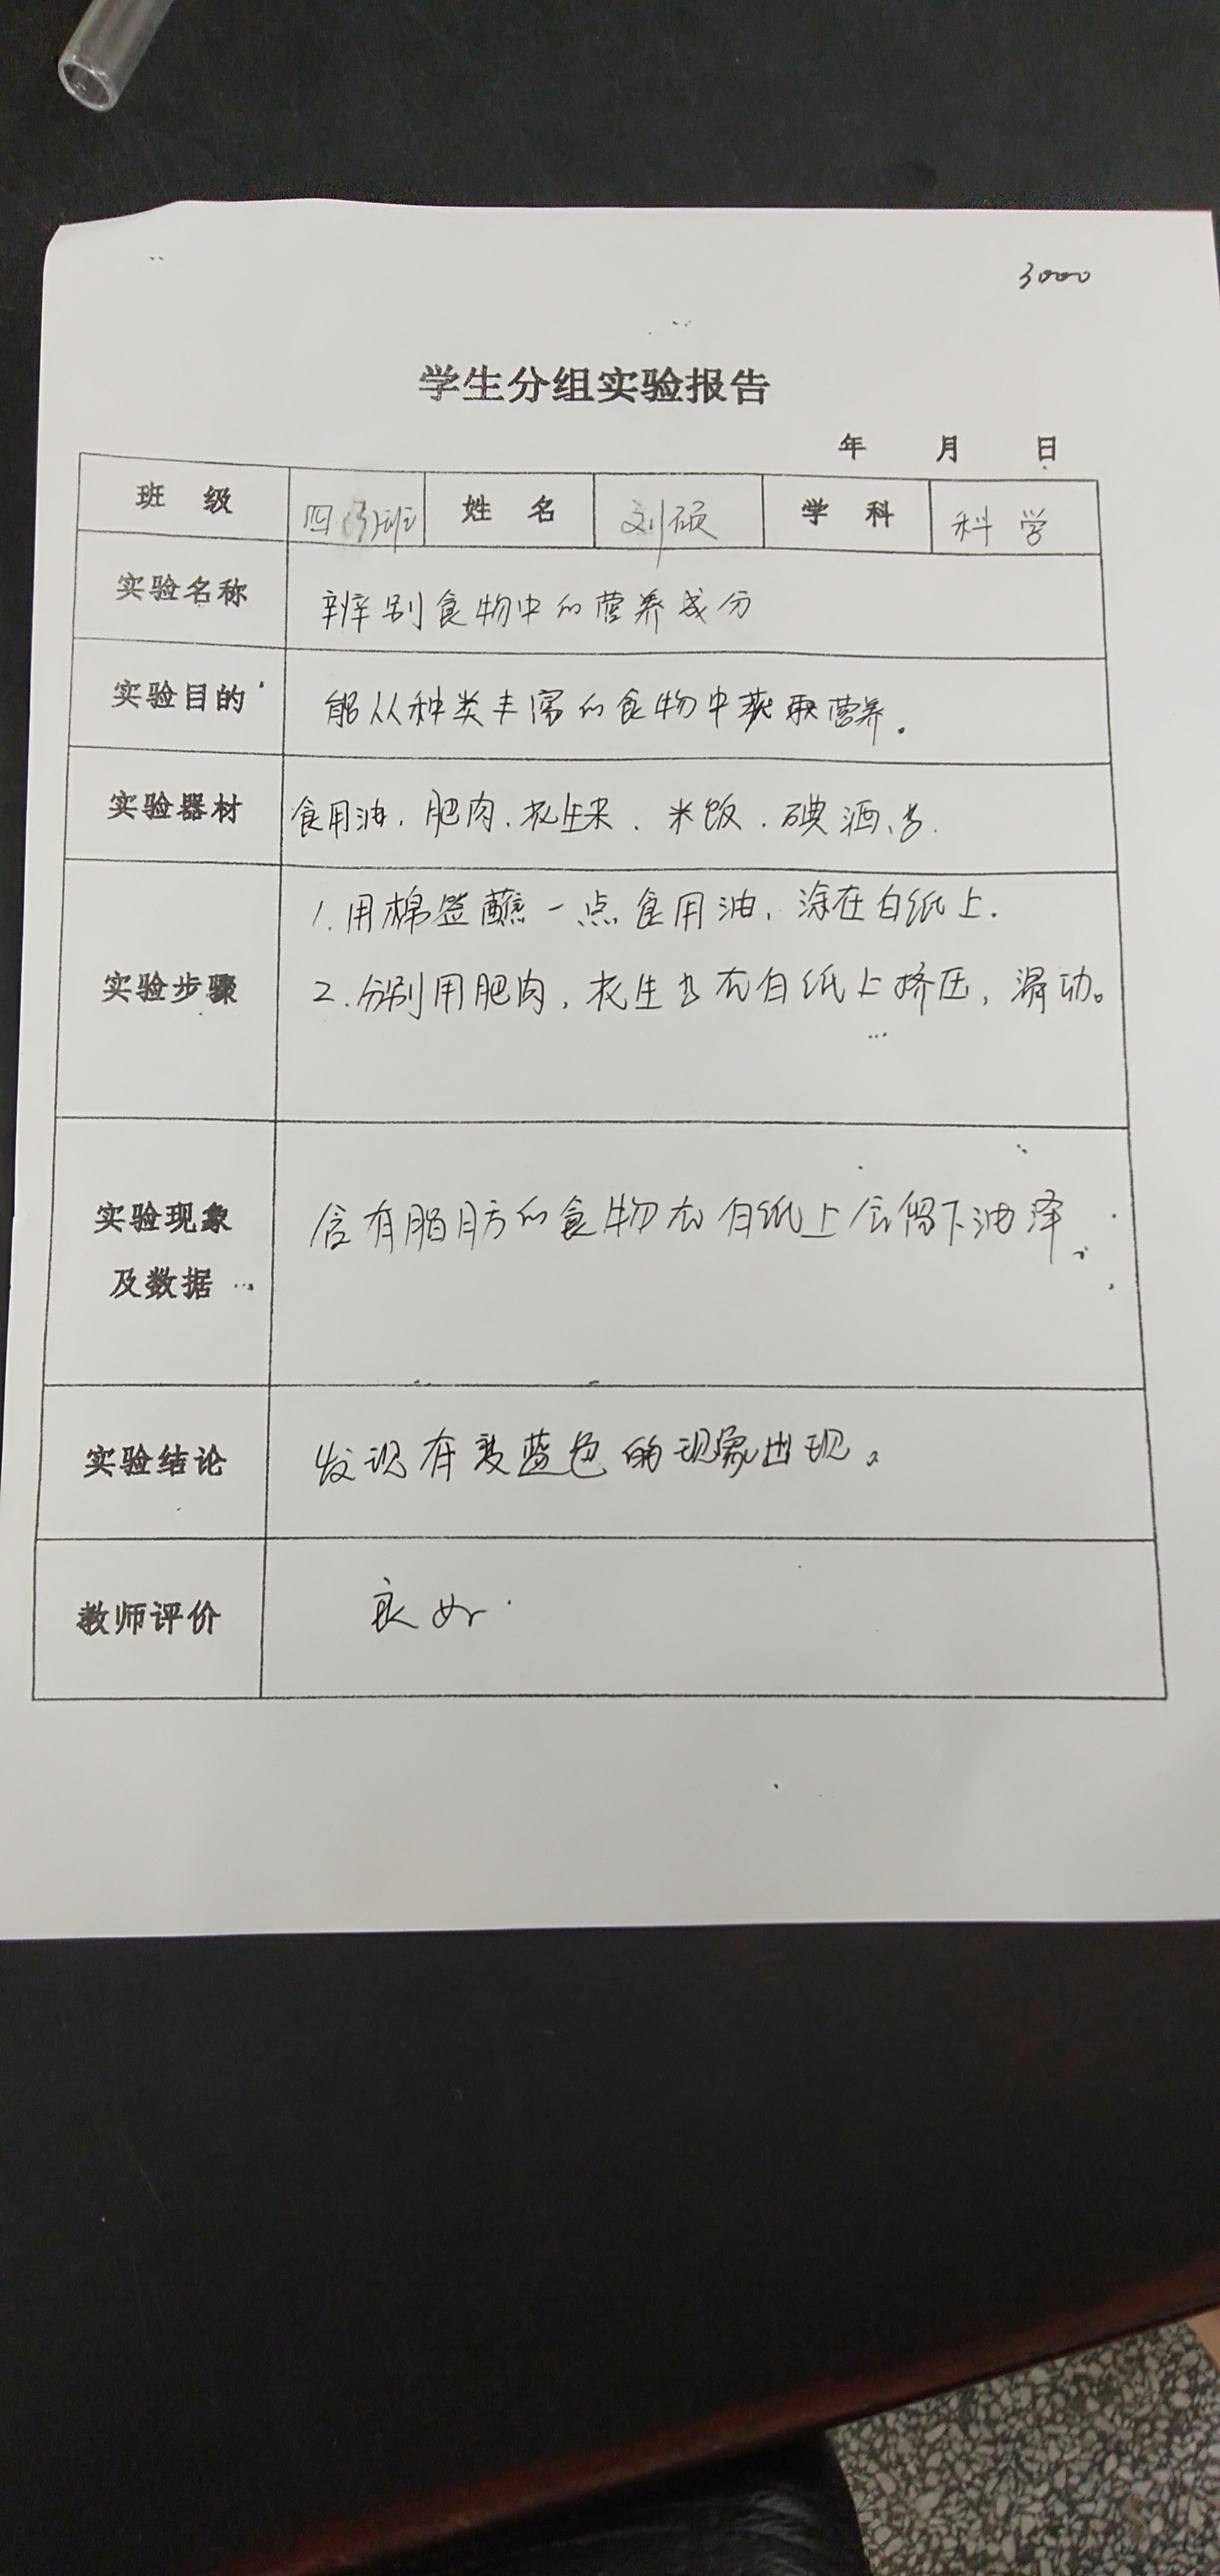 3000
学生分组实验报告
年 月 日
班 级 四 班 姓 名 刘硕 学 科 科学
实验名称 辨别食物中的营养成分
实验目的 能从种类丰富的食物中获取营养.
实验器材 食用油、肥肉、花生米、米饭、碘酒、
实验步骤
1.用棉签蘸一点食用油,涂在白纸上.
2.分别用肥肉,花生 在白纸上挤压,滑动。
实验现象
及数据
含有脂肪的食物在白纸上会留下油泽。
实验结论 发现有变蓝色的现象出现。
教师评价 良好.